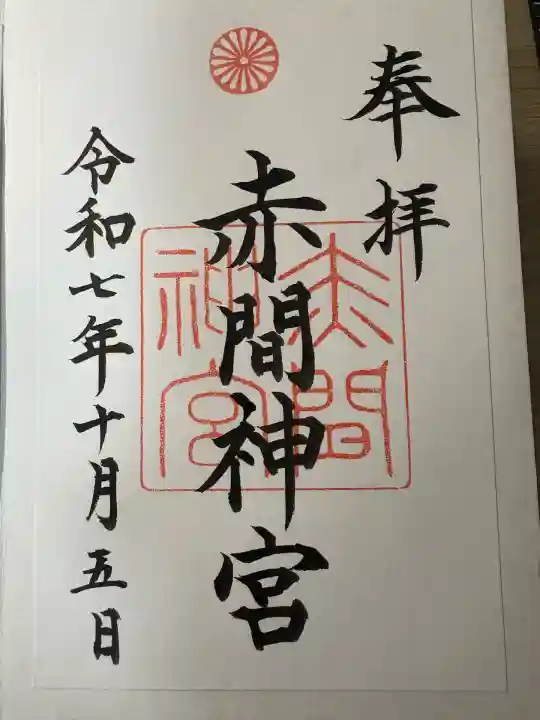 奉拝
赤間神宮
赤間神宮
令和七年十月五日